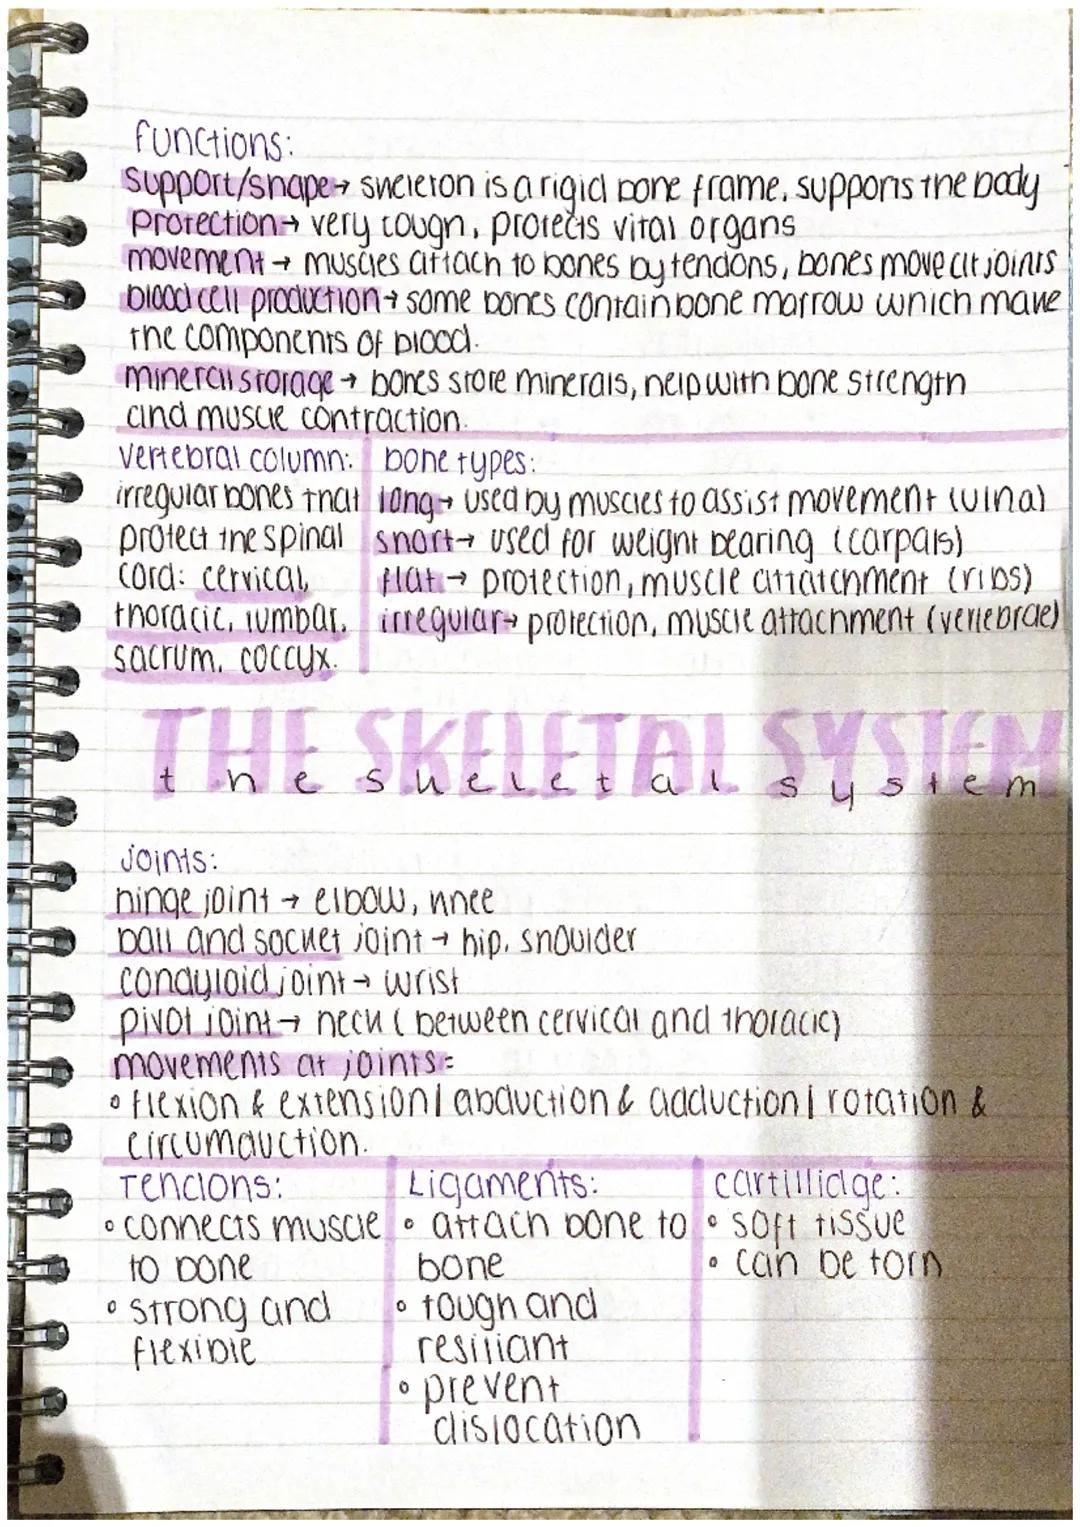 functions:
support/shape→ skeleton is a rigid bone frame, supports the body
protection→ very tough, protects vital organs
movement→ muscles attach to bones by tendons, bones move at joints
blood cell production→ some bones contain bone marrow which make
the components of blood.
mineral storage→ bones store minerals, help with bone strength
and muscle contraction.
vertebral column:
irregular bones that
protect the spinal
cord: cervical,
thoracic, lumbar,
sacrum, coccyx.
bone types:
long→ used by muscles to assist movement (ulna)
short→ used for weight bearing (carpals)
flat→ protection, muscle attatchment (ribs)
irregular→ protection, muscle attachment (vertebrae)
THE SKELETAL SYSTEM
the skeletal system
Joints:
hinge joint → elbow, knee
ball and socket joint → hip, shoulder
condyloid joint → wrist
pivot joint → neck (between cervical and thoracic)
movements at joints=
• flexion & extension | abduction & adduction | rotation &
circumduction.
Tendons:
• connects muscle
to bone
• strong and
flexible
Ligaments:
• attach bone to
bone
• tough and
resiliant
• prevent
dislocation
cartillidge:
• soft tissue
• can be torn